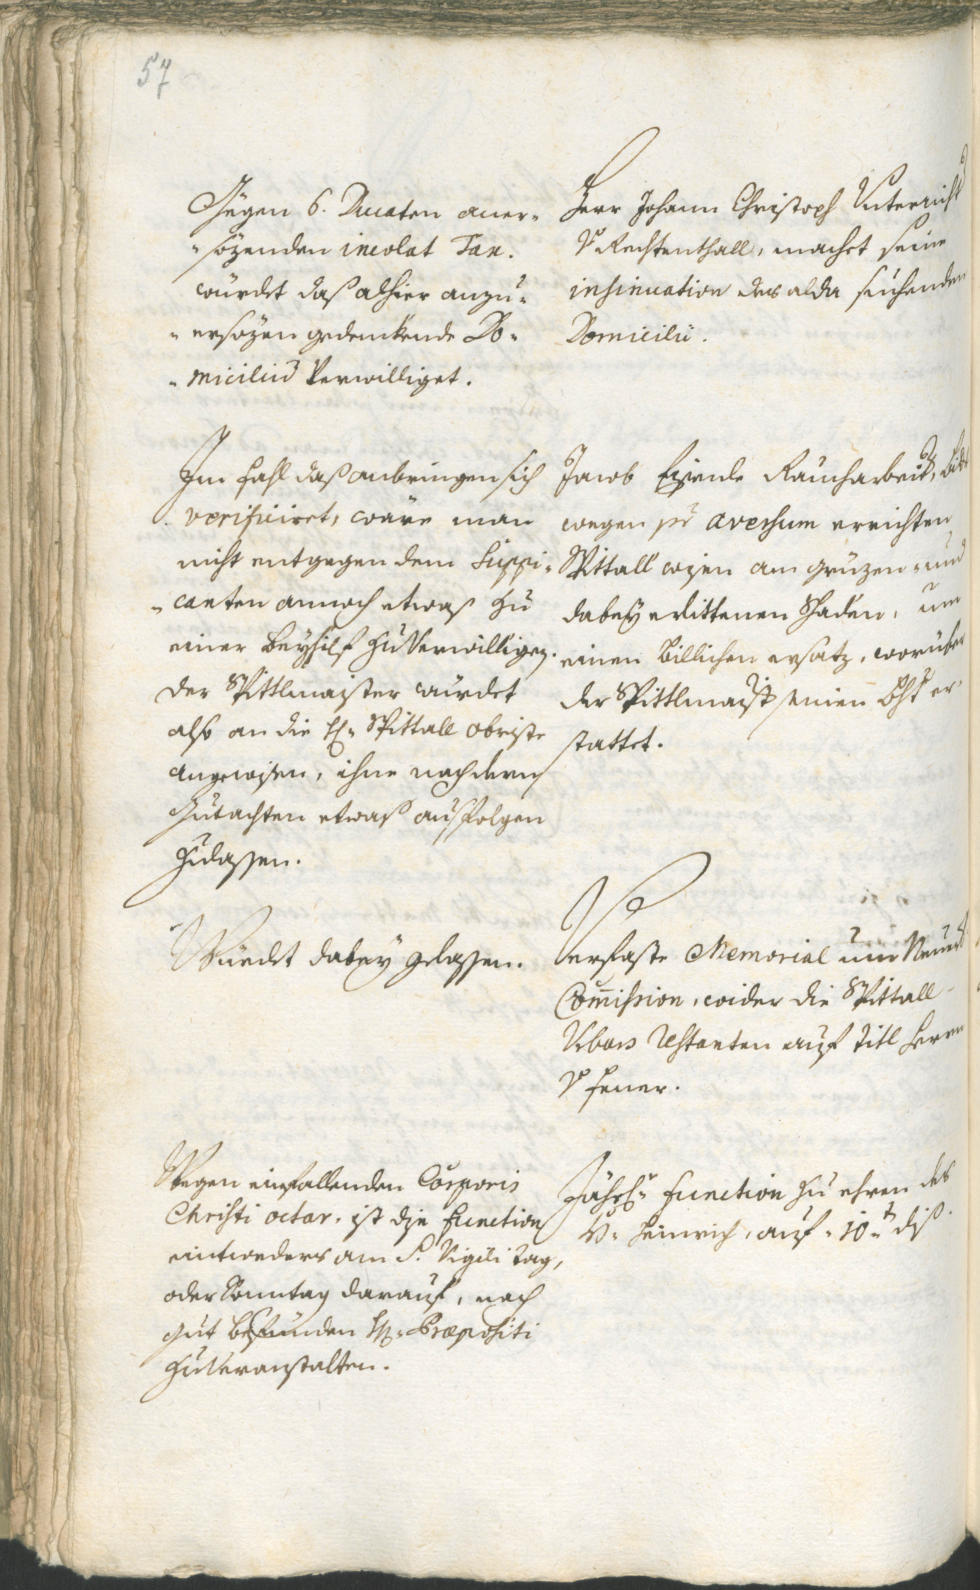 57
Gegen 6. Ducaten aner-
-sözenden incolat Tax.
würdet daß alhier anzu-
-ersözen gedenkende Do-
-micilium Verwilliget.
Herr Johann Christoph Unterricht
V. Rechtenthall, machet seine
insinuation des alda suchenden
Domicilii.
Im fahl daß anbringen sich
verificiret, wäre man
nicht entgegen dem Suppi-
-canten annoch etwaß zu
einer Beyhilf zu Verwilligen.
Der Spittlmaister würdet
also an die H: Spittall obriste
angewisen, ihme nach dern
Gutachten etwaß ausfolgen
zulassen.
Jacob Raucharbeit,
wegen p averssum errichten
Spittall wisen am gruzen- und
dabey erlittenen Schaden, um
einen billichen ersatz, worüber
der Spittlmaist seinen Bht er-
stattet.
Würdet dabey gelassen.
Verfaste Memorial um Neue
Commission, wider die Spittall
Urbars Restanten auf Titl Herrn
V Fener.
Wegen einfallenden Corporis
Christi octav. ist die Function
eintweders am S. Vigili tag,
oder Sonntag darauf, nach
gut befunden H: Præpositi
zu Veranstalten.
Jährl: Function zu ehren des
S: Heinrich, auf 10t diß.